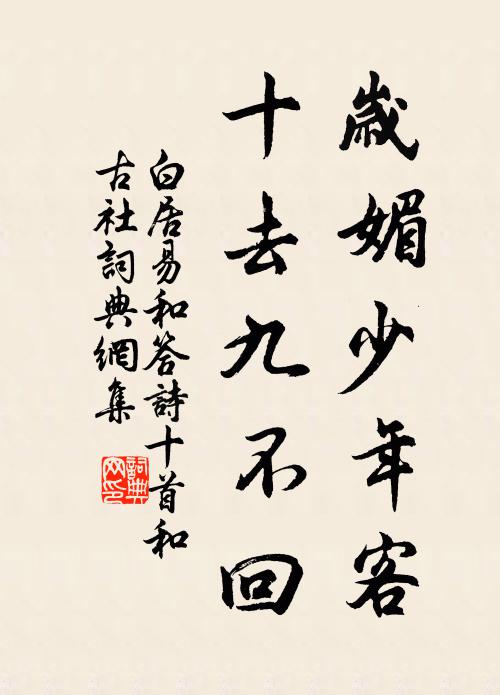 歲媚少年客
十去九不回
白居易和答詩十首和
古社詞典網集
詞典
网印